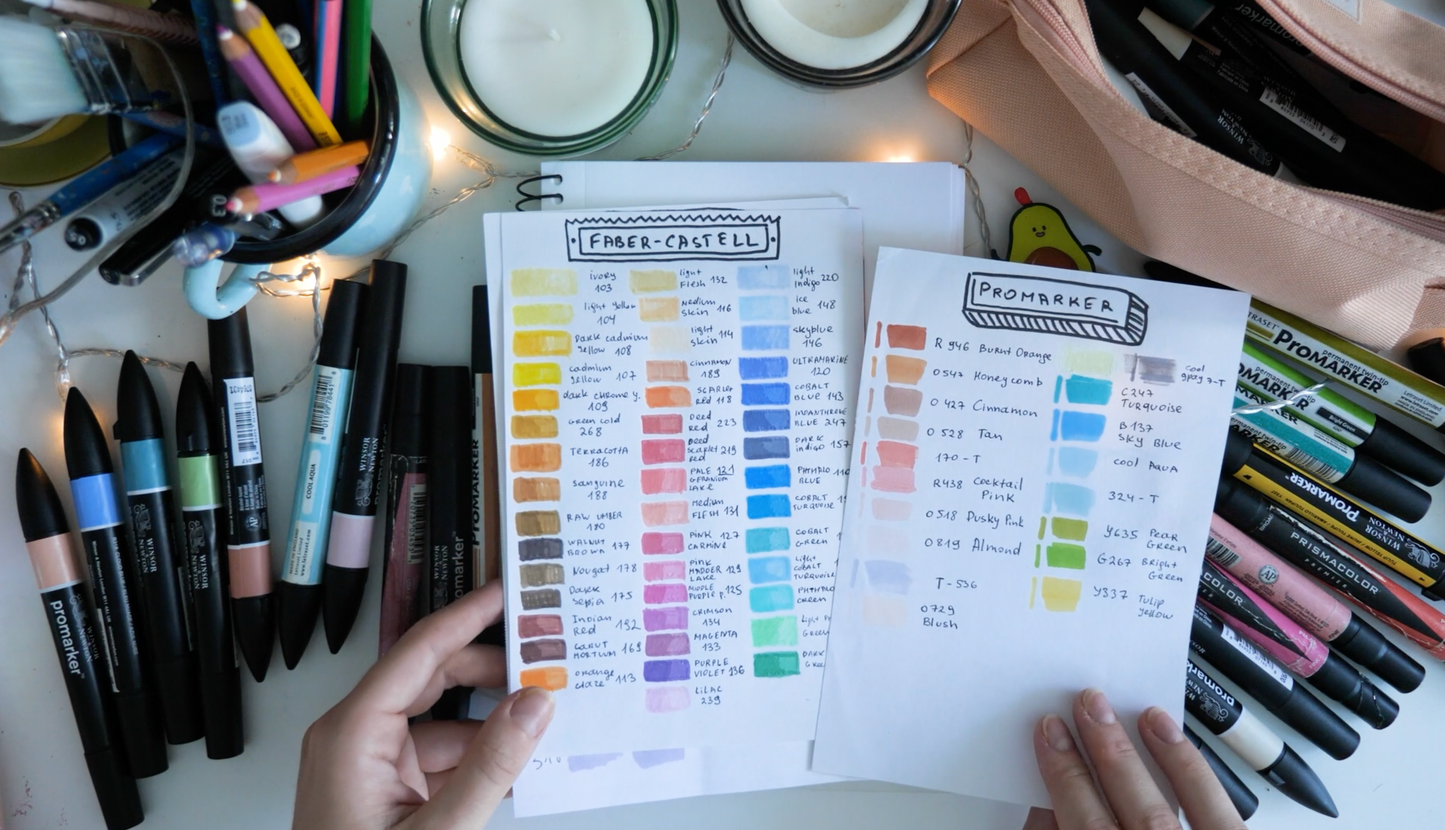 FABER-CASTELL
ivory
103
light yellow
104
Dark cadmium
yellow 108
cadmium
yellow 107
dark chrome y.
109
Green Gold
268
TERRACOTTA
186
Sanguine
188
RAW UMBER
180
WALNUT
BROWN 177
Nougat 178
Dark
Sepia 175
Indian
Red 192
CAPUT
MORTUUM 169
orange
Glaze 113
light
Flesh 132
Medium
skin 116
light 114
skin
CINNAMON
189
SCARLET
Red 118
Deep
red 223
Deep
Scarlet 219
Red
PALE 121
GERANIUM
LAKE
Medium
FLESH 131
PINK 127
CARMINE
Pink
MADDER 129
LAKE
MIDDLE
PURPLE P. 125
CRIMSON
134
MAGENTA
133
PURPLE
VIOLET 136
LILAC
239
light 220
indigo
ice
blue 148
skyblue
146
ULTRAMARINE
120
COBALT
BLUE 143
INDANTHRENE
BLUE 247
DARK
indigo 157
PHTHALO 110
BLUE
COBALT
TURQUOISE
COBALT
GREEN
Light
cobalt
TURQUOISE
PHTHALO
GREEN
Light
GREEN
DARK
PROMARKER
R 946 Burnt Orange
O 547 Honeycomb
O 427 Cinnamon
O 528 Tan
170-T
R438 Cocktail
Pink
O518 Dusky Pink
O819 Almond
T-536
O729
Blush
cool
gray 7-T
C247
TURQUOISE
B137
SKY BLUE
cool AQUA
324-T
Y635 Pear
Green
G267 Bright
Green
Y337 Tulip
yellow
promarker
WINSOR
NEWTON
WINSOR
NEWTON
COOL AQUA
PROMARKER
LETRASET
PROMARKER
permanent twin-tip
PROMARKER
PRISMACOLOR
PREMIER
promarker
0.3